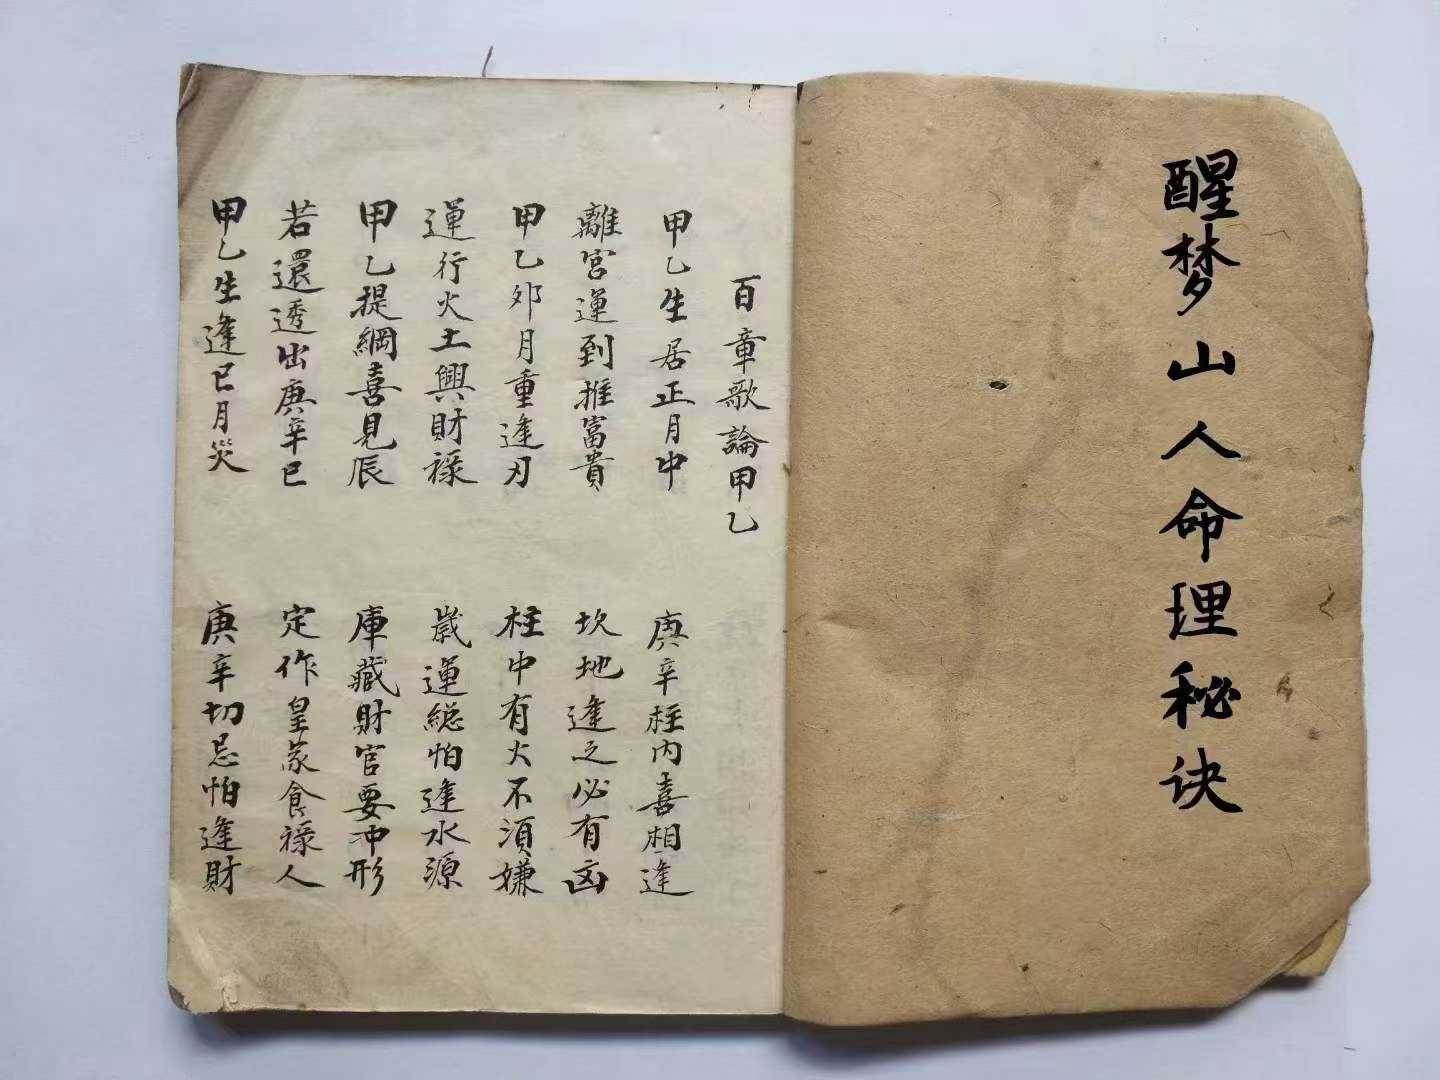 醒梦山人命理秘诀
百章歌論甲乙
甲乙生居正月中 庚辛柱内喜相逢
離宮運到推富貴 坎地逢之必有凶
甲乙卯月重逢刃 柱中有火不須嫌
運行火土興財祿 歲運緫怕逢水源
甲乙提綱喜見辰 庫藏財官要冲形
若還透出庚辛巳 定作皇家食祿人
甲乙生逢巳月災 庚辛切忌怕逢財